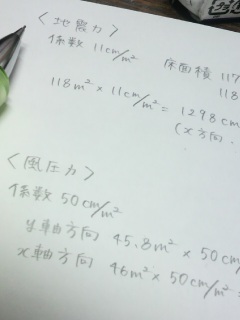 ＜地震力＞
係数 11cm/m² 床面積 117
118
118m² × 11cm/m² = 1298cm
(x方向、
＜風圧力＞
係数 50cm/m²
y軸方向 45.8m² × 50cm/
x軸方向 46m² × 50cm/m² =